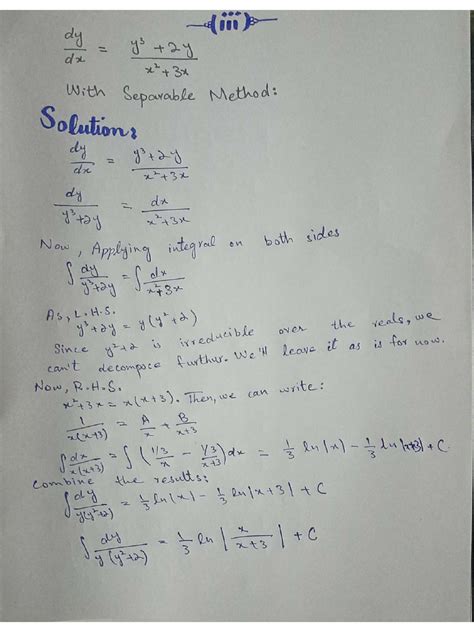 (iii)
dy/dx = y³ + 2y / x² + 3x
With Separable Method:
Solution:
dy/dx = y³ + 2y / x² + 3x
dy / y³ + 2y = dx / x² + 3x
Now, Applying integral on both sides
∫ dy / y³ + 2y = ∫ dx / x² + 3x
As, L.H.S.
y³ + 2y = y (y² + 2)
Since y² + 2 is irreducible over the reals, we
can't decompose furthur. We'll leave it as is for now.
Now, R.H.S.
x² + 3x = x(x + 3). Then, we can write:
1 / x(x+3) = A/x + B/x+3
∫ dx / x(x+3) = ∫ (1/3 / x − 1/3 / x+3) dx = 1/3 ln |x| − 1/3 ln |x+3| + C.
Combine the results:
∫ dy / y(y²+2) = 1/3 ln |x| − 1/3 ln |x + 3| + C
∫ dy / y (y² + 2) = 1/3 ln | x / x + 3 | + C